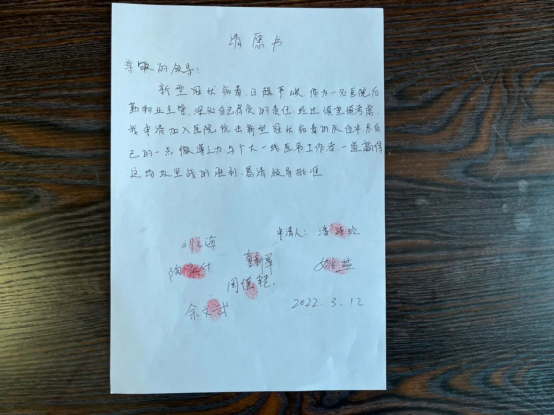 请愿书
尊敬的领导：
新型冠状病毒，日趋严峻，作为一名医院后
勤物业主管，深知自己肩负的责任，经过慎重慎考虑，
我申请加入医院抗击新型冠状病毒的队伍中尽自
己的一点微薄之力与广大一线医务工作者一道赢得
这场攻坚战的胜利，恳请领导批准
申请人：潘
海
陶
军
周
余文武
2022.3.12